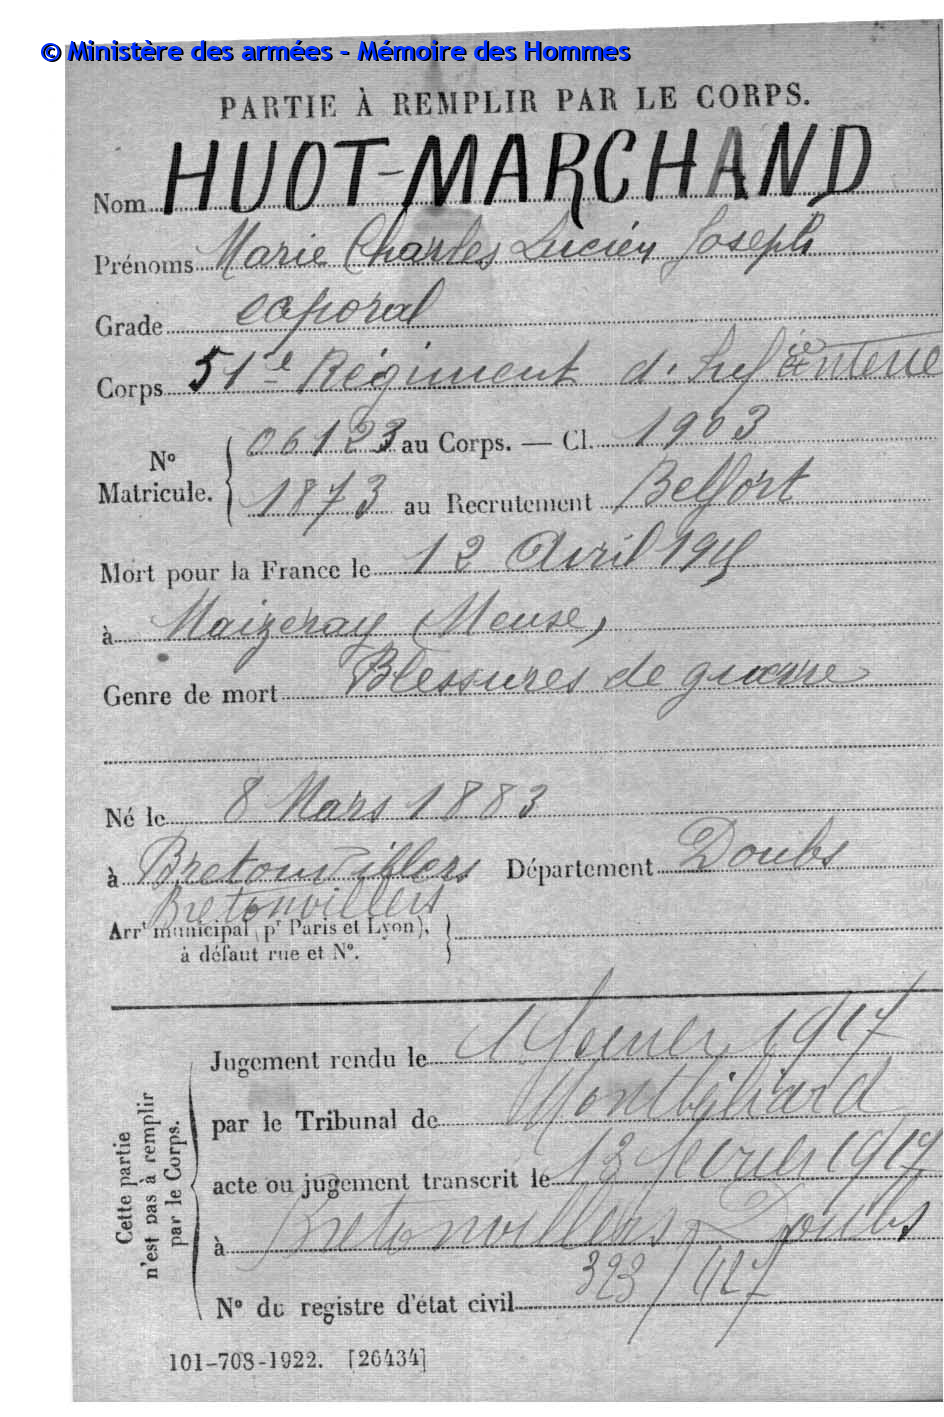 © Ministère des armées - Mémoire des Hommes
PARTIE À REMPLIR PAR LE CORPS.
Nom HUOT-MARCHAND
Prénoms Marie Charles Lucien Joseph
Grade caporal
Corps 51e Régiment d'Infanterie
N° Matricule. { 06123 au Corps. — Cl. 1903
1873 au Recrutement Belfort
Mort pour la France le 12 Avril 1915
à Maizeray (Meuse)
Genre de mort Blessures de guerre
Né le 8 Mars 1883
à Bretonvillers Département Doubs
Bretonvillers
Arrt municipal (pr Paris et Lyon), }
à défaut rue et N°.
Cette partie n'est pas à remplir par le Corps.
Jugement rendu le 1 février 1917
par le Tribunal de Montbéliard
acte ou jugement transcrit le 12 février 1917
à Bretonvillers Doubs
N° du registre d'état civil 323/427
101-708-1922. [26434]